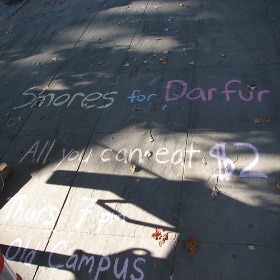 Smores for Darfur
All you can eat $2
Thurs 7pm
Old Campus